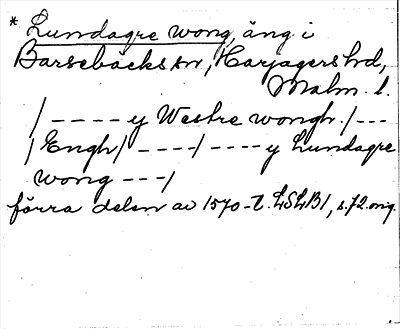 * Lundagre wong, äng i
Barsebäcks sn, Harjagers hd,
Malm. l.
/ - - - - y Westre wongh. / - - -
/ Engh / - - - - / - - - - y Lundagre
wong - - - /
förra delen av 1570-t. LSLB1, s. 72. orig.